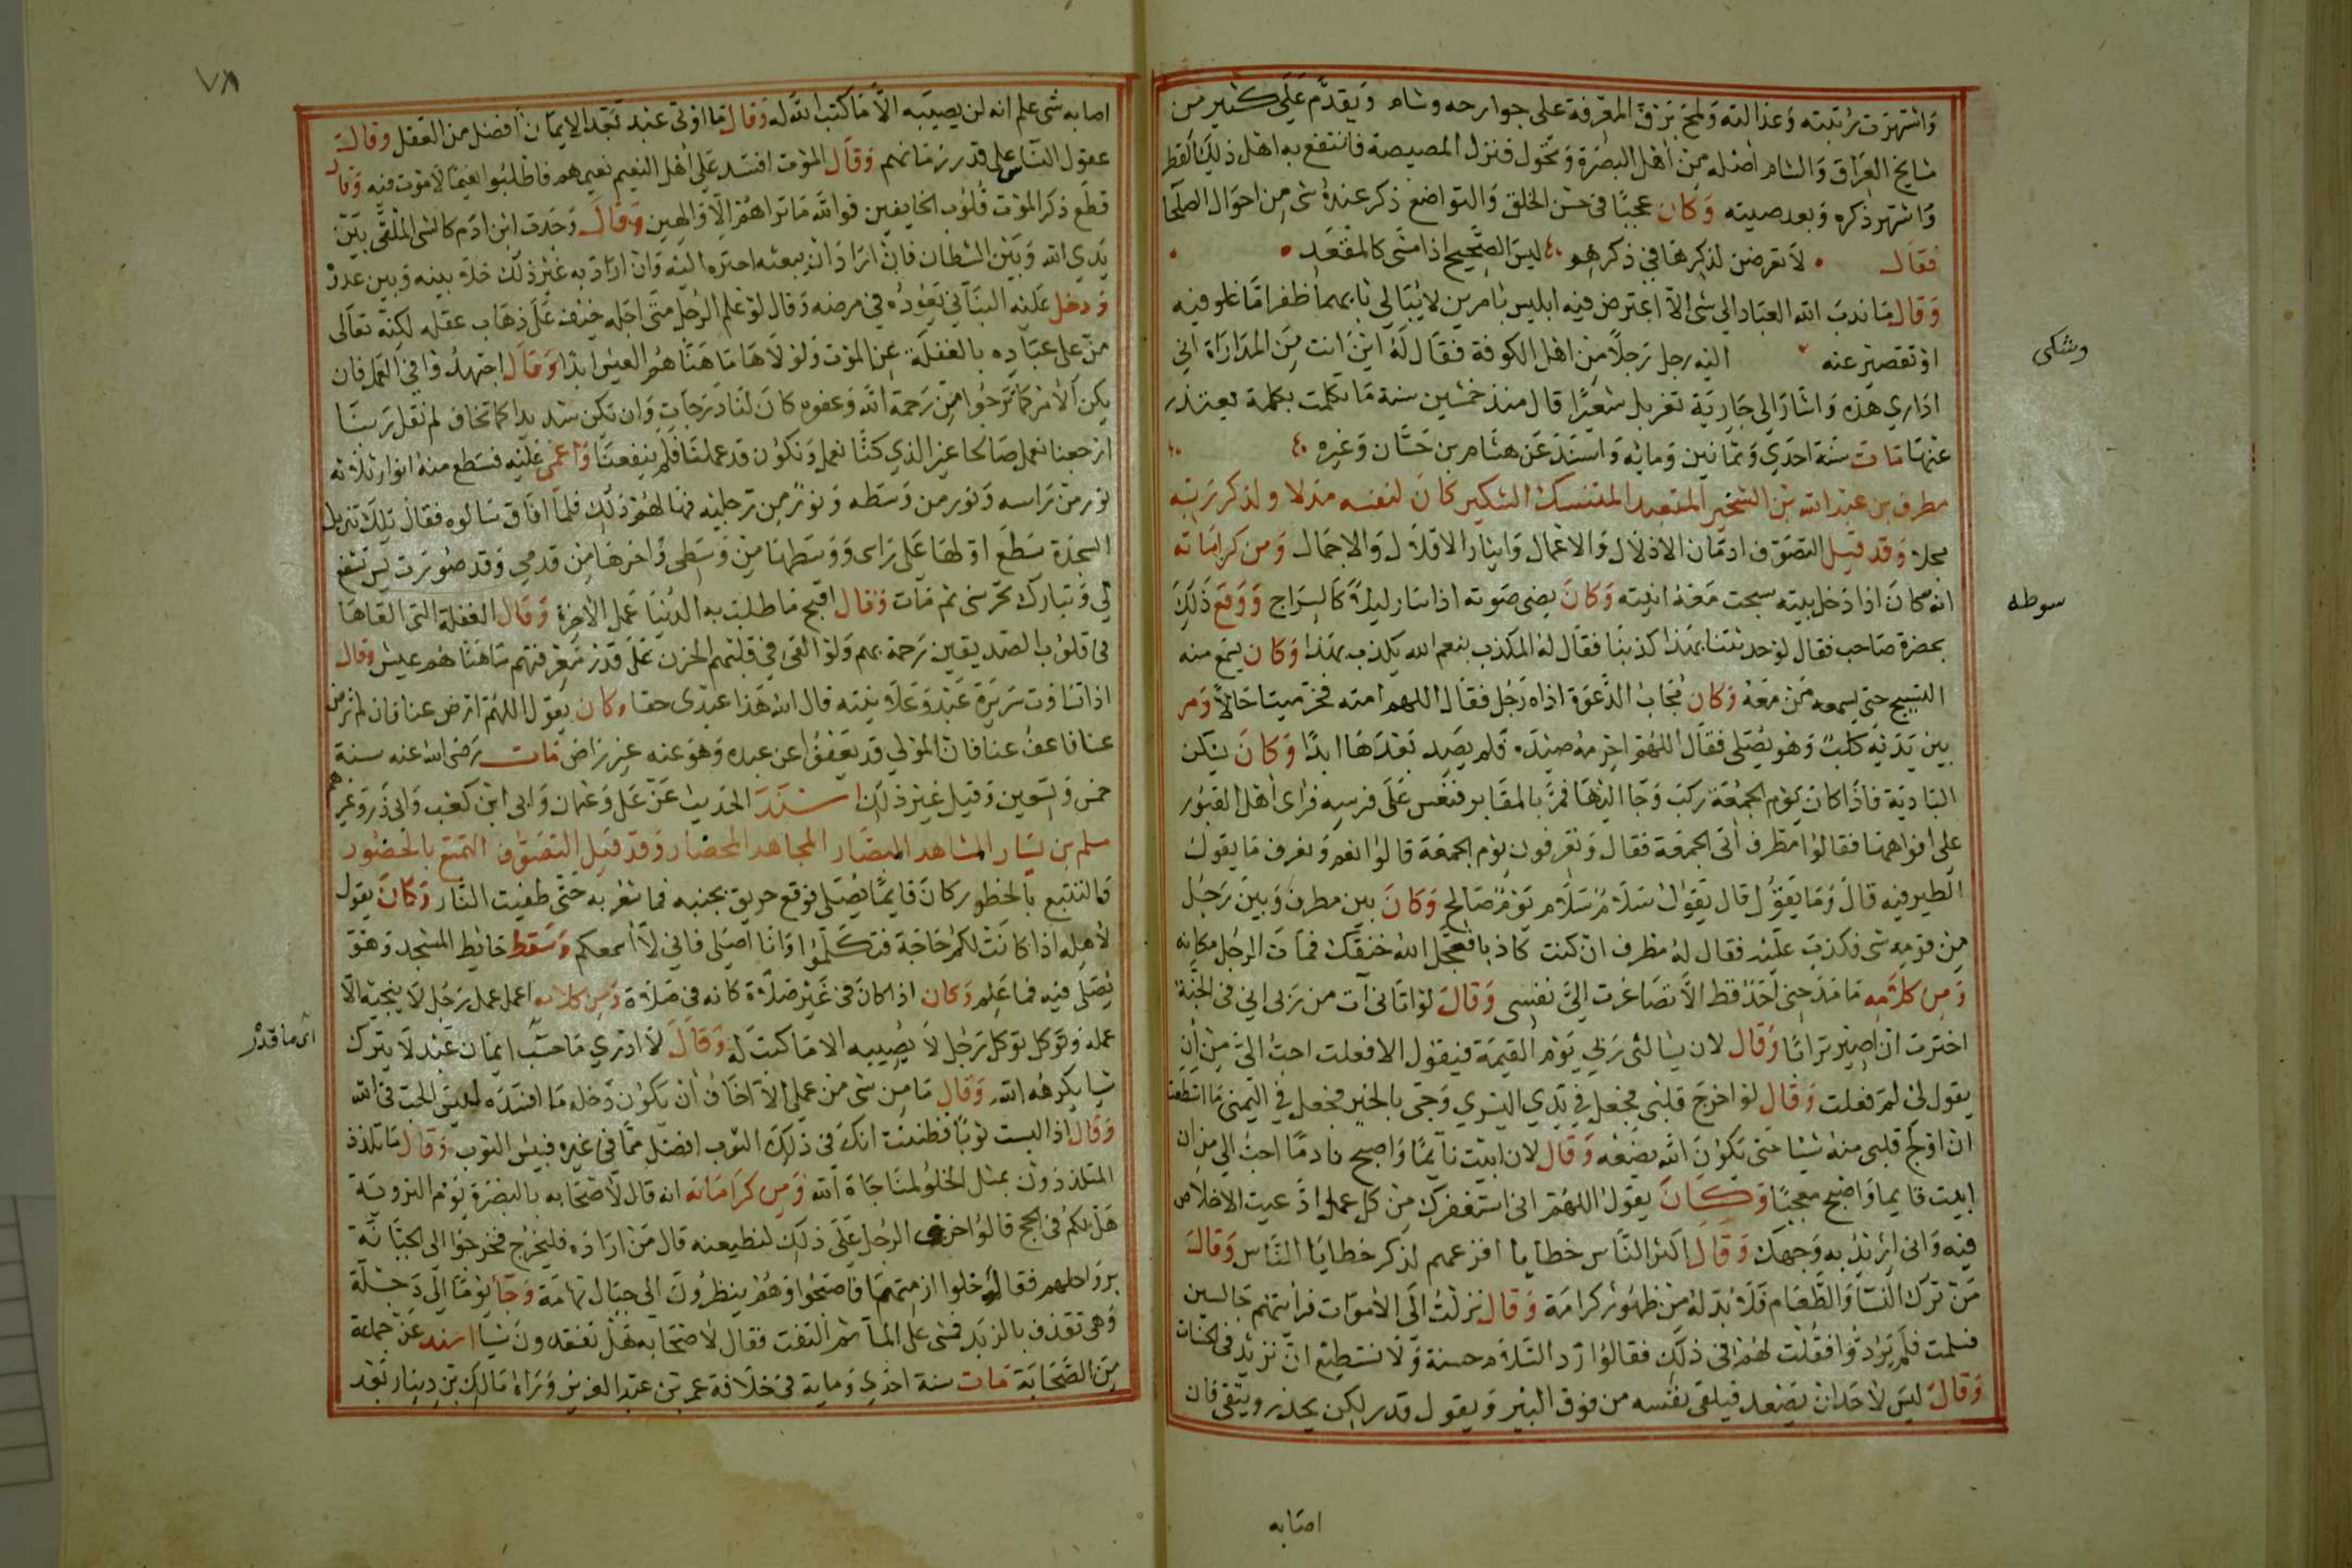 واشتهرت رتبته وعدالته ولمح برق المعرفة على جوارحه وشام وتقدم على كثير من
مشايخ العراق والشام اصله من اهل البصرة وتحول فنزل المصيصة فانتفع به اهل ذلك القطر
واشتهر ذكره وبعد صيته وكان عجبا في حسن الخلق والتواضع ذكر عنده شي من احوال الصلحا
فقال لا تعرضن لذكرها في ذكرهم ليس الصحيح اذا مشى كالمقعد
وقال ما ندب الله العباد الى شى الا اعترض فيه ابليس بامرين لا يبالي بايهما ظفر اما غلو فيه
او تقصير عنه اليه رجل رجلا من اهل الكوفة فقال له اين انت من المداراة اني
وشكى
اداري هذه واشار الى جارية تغربل شعيرا قال منذ خمسين سنة ما تكلمت بكلمة يعتذر
عنها مات سنة احدي وثمانين وماية واسند عن هشام بن حسان وغيره
مطرف بن عبد الله بن الشخير المتعبد المتنسك الشكير كان لنفسه مذلا ولذكر ربه
مجلا وقد قيل التصوف ادمان الاذلال والاعمال وايثار الاقلال والاجمال ومن كراماته
انه كان اذا دخل بيته سبحت معه انيته وكان يضى صوته اذا سار ليلا كالسراج ووقع ذلك
سوطه
بحضرة صاحب فقال لو حدثنا بهذا كذبنا فقال له المكذب بنعم الله يكذب بهذا وكان يسمع منه
التسبيح حتى يسمعه من معه وكان مجاب الدعوة اذاه رجل فقال اللهم امته فخر ميتا حالا ومر
بين يديه كلب وهو يصلى فقال اللهم احرمه صيده فلم يصد بعدها ابدا وكان يسكن
البادية فاذا كان يوم الجمعة ركب وجا اليها فمر بالمقابر فنعس على فرسه فراى اهل القبور
على افواهها فقالوا مطرف اتى الجمعة فقال وتعرفون يوم الجمعة قالوا نعم ونعرف ما يقول
الطير فيه قال وما يقول قال يقول سلام سلام يوم صالح وكان بين مطرف وبين رجل
من قومه شى فكذب عليه فقال له مطرف ان كنت كاذبا فعجل الله حتفك فمات الرجل مكانه
ومن كلامه ما مدحني احد قط الا تصاغرت الي نفسى وقال لو اتاني آت من ربي اني في الجنة
اخترت ان اصير ترابا وقال لان يسالنى ربي يوم القيمة فيقول الا فعلت احب الي من ان
يقول لي لم فعلت وقال لو اخرج قلبي فجعل في يدي اليسري وجى بالخير فجعل في اليمنى ما استطعت
ان اولج قلبى منه شيئا حتى يكون الله يضعه وقال لان ابيت نايما واصبح نادما احب الي من ان
ابيت قايما واصبح معجبا وكان يقول اللهم اني استغفرك من كل عمل ادعيت الاخلاص
فيه واني اريد به وجهك وقال اكثر الناس خطايا افزعهم لذكر خطايا الناس وقال
من ترك النسا والطعام فلا بد له من ظهور كرامة وقال نزلت الى الاموات فرايتهم جالسين
فسلمت فلم يردوا فقلت لهم في ذلك فقالوا رد السلام حسنة ولا نستطيع ان نزيد في الحسنات
وقال ليس لاحد ان يصعد فيلقى نفسه من فوق البير ويقول قدر لكن يحذر ويتقى فان
اصابه
٧٨
اصابه شى علم انه لن يصيبه الا ما كتب الله له وقال ما اوتي عبد بعد الايمان افضل من العقل وقال
عقول الناس على قدر زمانهم وقال الموت افسد على اهل النعيم نعيمهم فاطلبوا نعيما لا موت فيه وقال
قطع ذكر الموت قلوب الخايفين فوالله ما تراهم الا والهين وقال وجدت ابن ادم كالشى الملقى بين
يدي الله وبين الشيطان فان اراد ان ينعشه اجتره اليه وان اراد به غير ذلك خلا بينه وبين عدو
ودخل عليه البناني يعوده في مرضه وقال لو علم الرجل متى اجله خيف على ذهاب عقله لكنه تعالى
من على عباده بالغفلة عن الموت ولولاها ما هناهم العيش ابدا وقال اجتهدوا في العمل فان
يكن الامر كما ترجوا من رحمة الله وعفوه كان لنا درجات وان يكن شديدا كما تخاف لم نقل ربنا
ارجعنا نعمل صالحا غير الذي كنا نعمل ونكون قد عملنا فلم ينفعنا واغمى عليه فسطع منه انوار ثلاثه
نور من راسه ونور من وسطه ونور من رجليه فهالهم ذلك فلما افاق سالوه فقال تلك تنزيل
السجدة سطع اولها على راسى ووسطها من وسطى واخرها من قدمي وقد صورت تشفع
لي وتبارك تحرسنى ثم مات وقال اقبح ما طلبت به الدنيا عمل الاخرة وقال الغفلة التى القاها
في قلوب الصديقين رحمة بهم ولو القى في قلبهم الحزن على قدر معرفتهم ما هناهم عيش وقال
اذا تساوت سريرة عبد وعلانيته قال الله هذا عبدى حقا وكان يقول اللهم ارض عنا فان لم ترض
عنا فاعف عنا فان المولي قد يعفوا عن عبده وهو عنه غير راض مات رضى الله عنه سنة
خمس وتسعين وقيل غير ذلك اسند الحديث عن على وعثمان وابي ابن كعب وابي ذر وغيرهم
مسلم بن يسار المشاهد المبصار المجاهد المحضار وقد قيل التصوف التمتع بالحضور
والتتبع بالخطور كان قايما يصلى فوقع حريق بجنبه فما شعر به حتى طفيت النار وكان يقول
لاهله اذا كانت لكم حاجة فتكلموا وانا اصلى فاني لا اسمعكم وسقط حايط المسجد وهو
يصلى فيه فما علم وكان اذا كان في غير صلاة كانه في صلاة ومن كلامه اعمل عمل رجل لا ينجيه الا
عمله وتوكل توكل رجل لا يصيبه الا ما كتب له وقال لا ادري ما حسب ايمان عبد لا يترك
اى ما قدر
شيا يكرهه الله وقال ما من شى من عملي الا اخاف ان يكون دخله ما افسده ليس الحب في الله
وقال اذا لبست ثوبا فظننت انك في ذلك الثوب افضل مما في غيره فبيس الثوب وقال ما تلذذ
المتلذذون بمثل الخلو لمناجاة الله ومن كراماته انه قال لاصحابه بالبصرة يوم التروية
هل لكم في الحج قالوا خرف الرجل على ذلك لنطيعنه قال من اراده فليخرج فخرجوا الى الجبانة
برواحلهم فقال خلوا ازمتها فاصبحوا وهم ينظرون الى جبال تهامة وجا يوما الي دجلة
وهى تقذف بالزبد فمشى على الما ثم التفت فقال لاصحابه هل تفقدون شيا اسند عن جماعة
من الصحابة مات سنة احدي وماية في خلافة عمر بن عبد العزيز وراه مالك بن دينار بعد